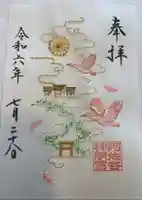 奉拝
令和六年
七月二十八日